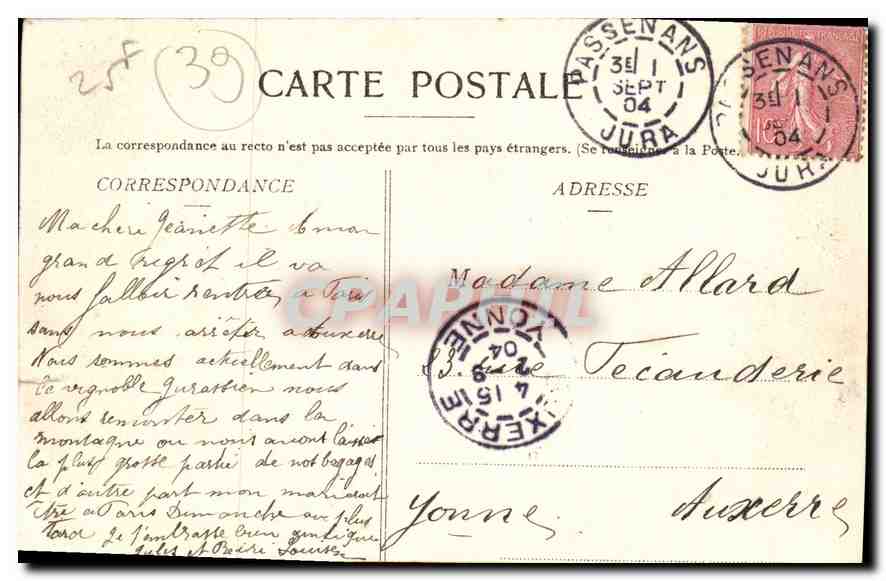 25F
39
CARTE POSTALE
PASSENANS
3E 1
SEPT
04
JURA
REPUBLIQUE FRANÇAISE
PASSENANS
3E 1
04
JURA
La correspondance au recto n'est pas acceptée par tous les pays étrangers. (Se renseigner à la Poste.
CORRESPONDANCE
ADRESSE
Ma cheri Jeanette A mon
grand regret il va
nous falloir rentrer a Paris
sans nous arrêter a Auxerre
Nous sommes actuellement dans
le vignoble Jurassien nous
allons remonter dans la
montagne ou nous avons laissé
la plus grosse partie de nos bagages
et d'autre part mon mari doit
être a Paris Dimanche au plus
tard Je t'embrasse bien ainsi que
Jules et
Madame Allard
23. Rue Fécanderie
Auxerre
Yonne.
AUXERRE
4 15
2 9
04
YONNE
CPARHUIL